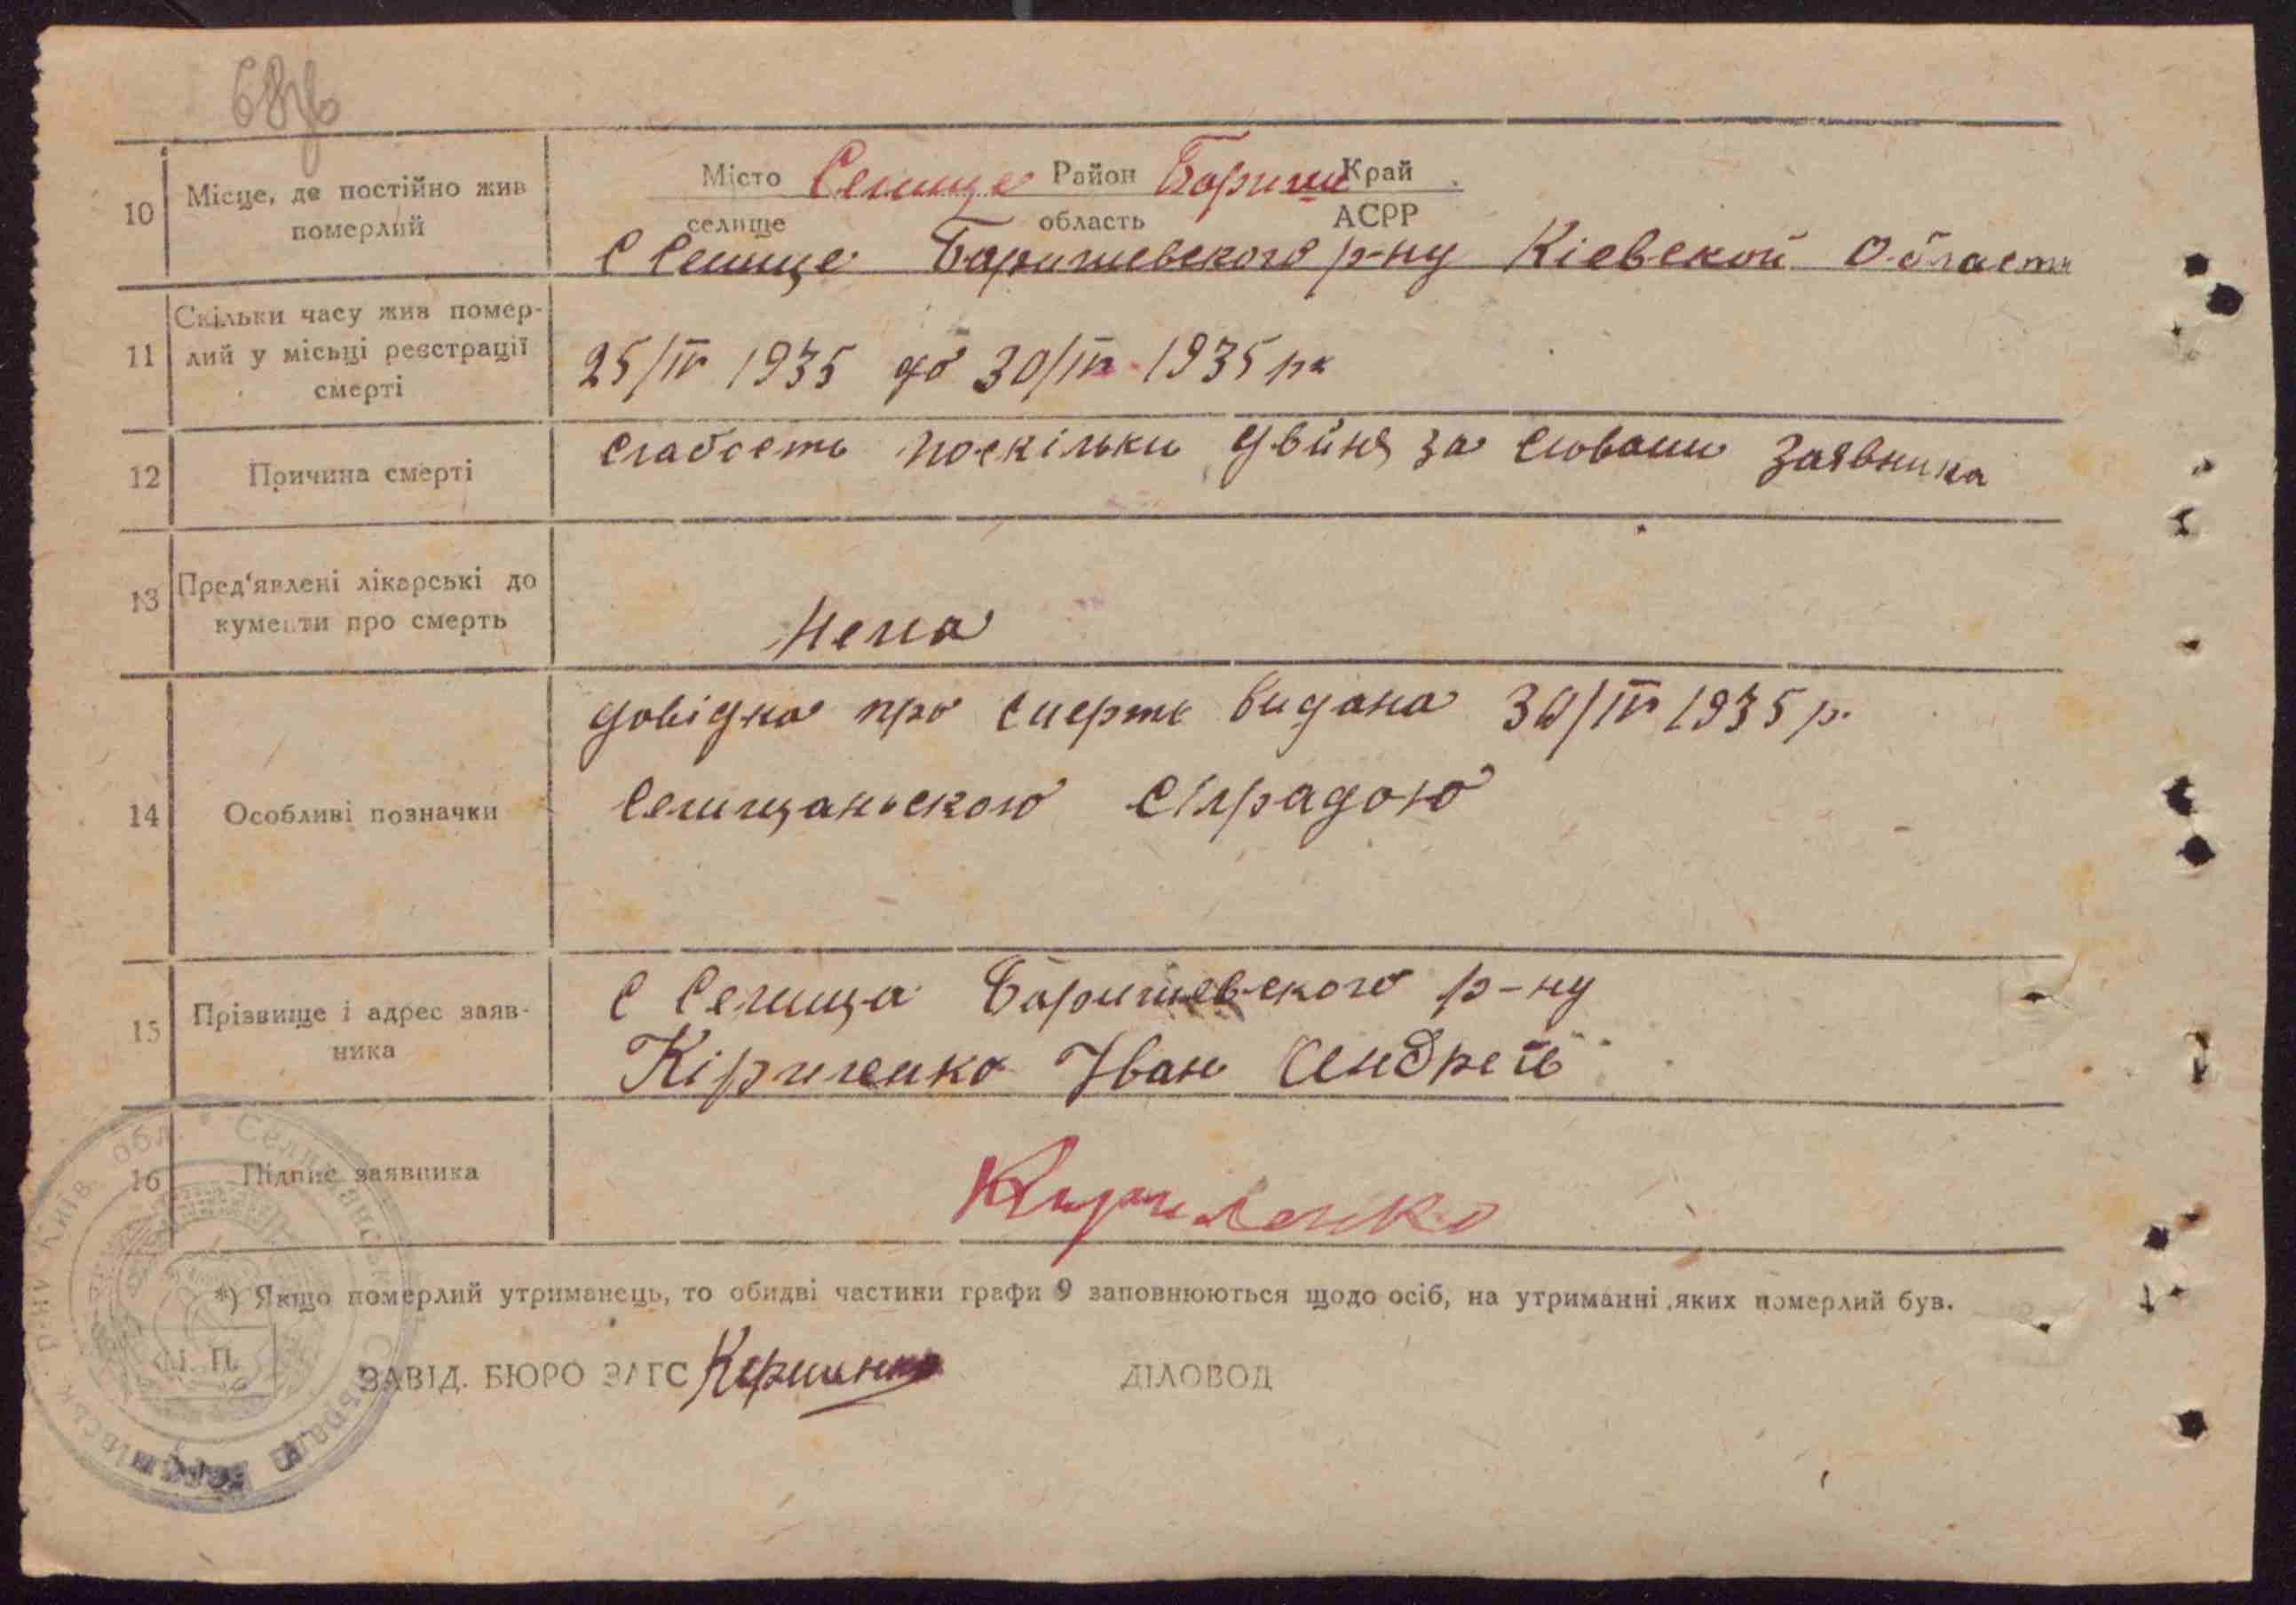 68
10
Місце, де постійно жив
померлий
Місто Селище Район Бориш Край
селище область АСРР
С Селище Баришевского р-ну Кіевской Области
11
Скільки часу жив помер-
лий у місьці реєстрації
смерті
25/IV 1935 до 30/IV 1935 рк
12
Причина смерті
слабость поскільки двйня за словами заявника
13
Пред'явлені лікарські до
кументи про смерть
Нема
14
Особливі позначки
довідка про смерть видана 30/IV 1935 р.
Селищанською сілрадою
15
Прізвище і адрес заяв-
ника
С Селища Баришевского р-ну
Кіриченко Іван Андреїв
16
Підпис заявника
Кириленко
*) Якщо померлий утриманець, то обидві частини графи 9 заповнюються щодо осіб, на утриманні яких померлий був.
М. П.
ЗАВІД. БЮРО ЗАГС
ДІЛОВОД